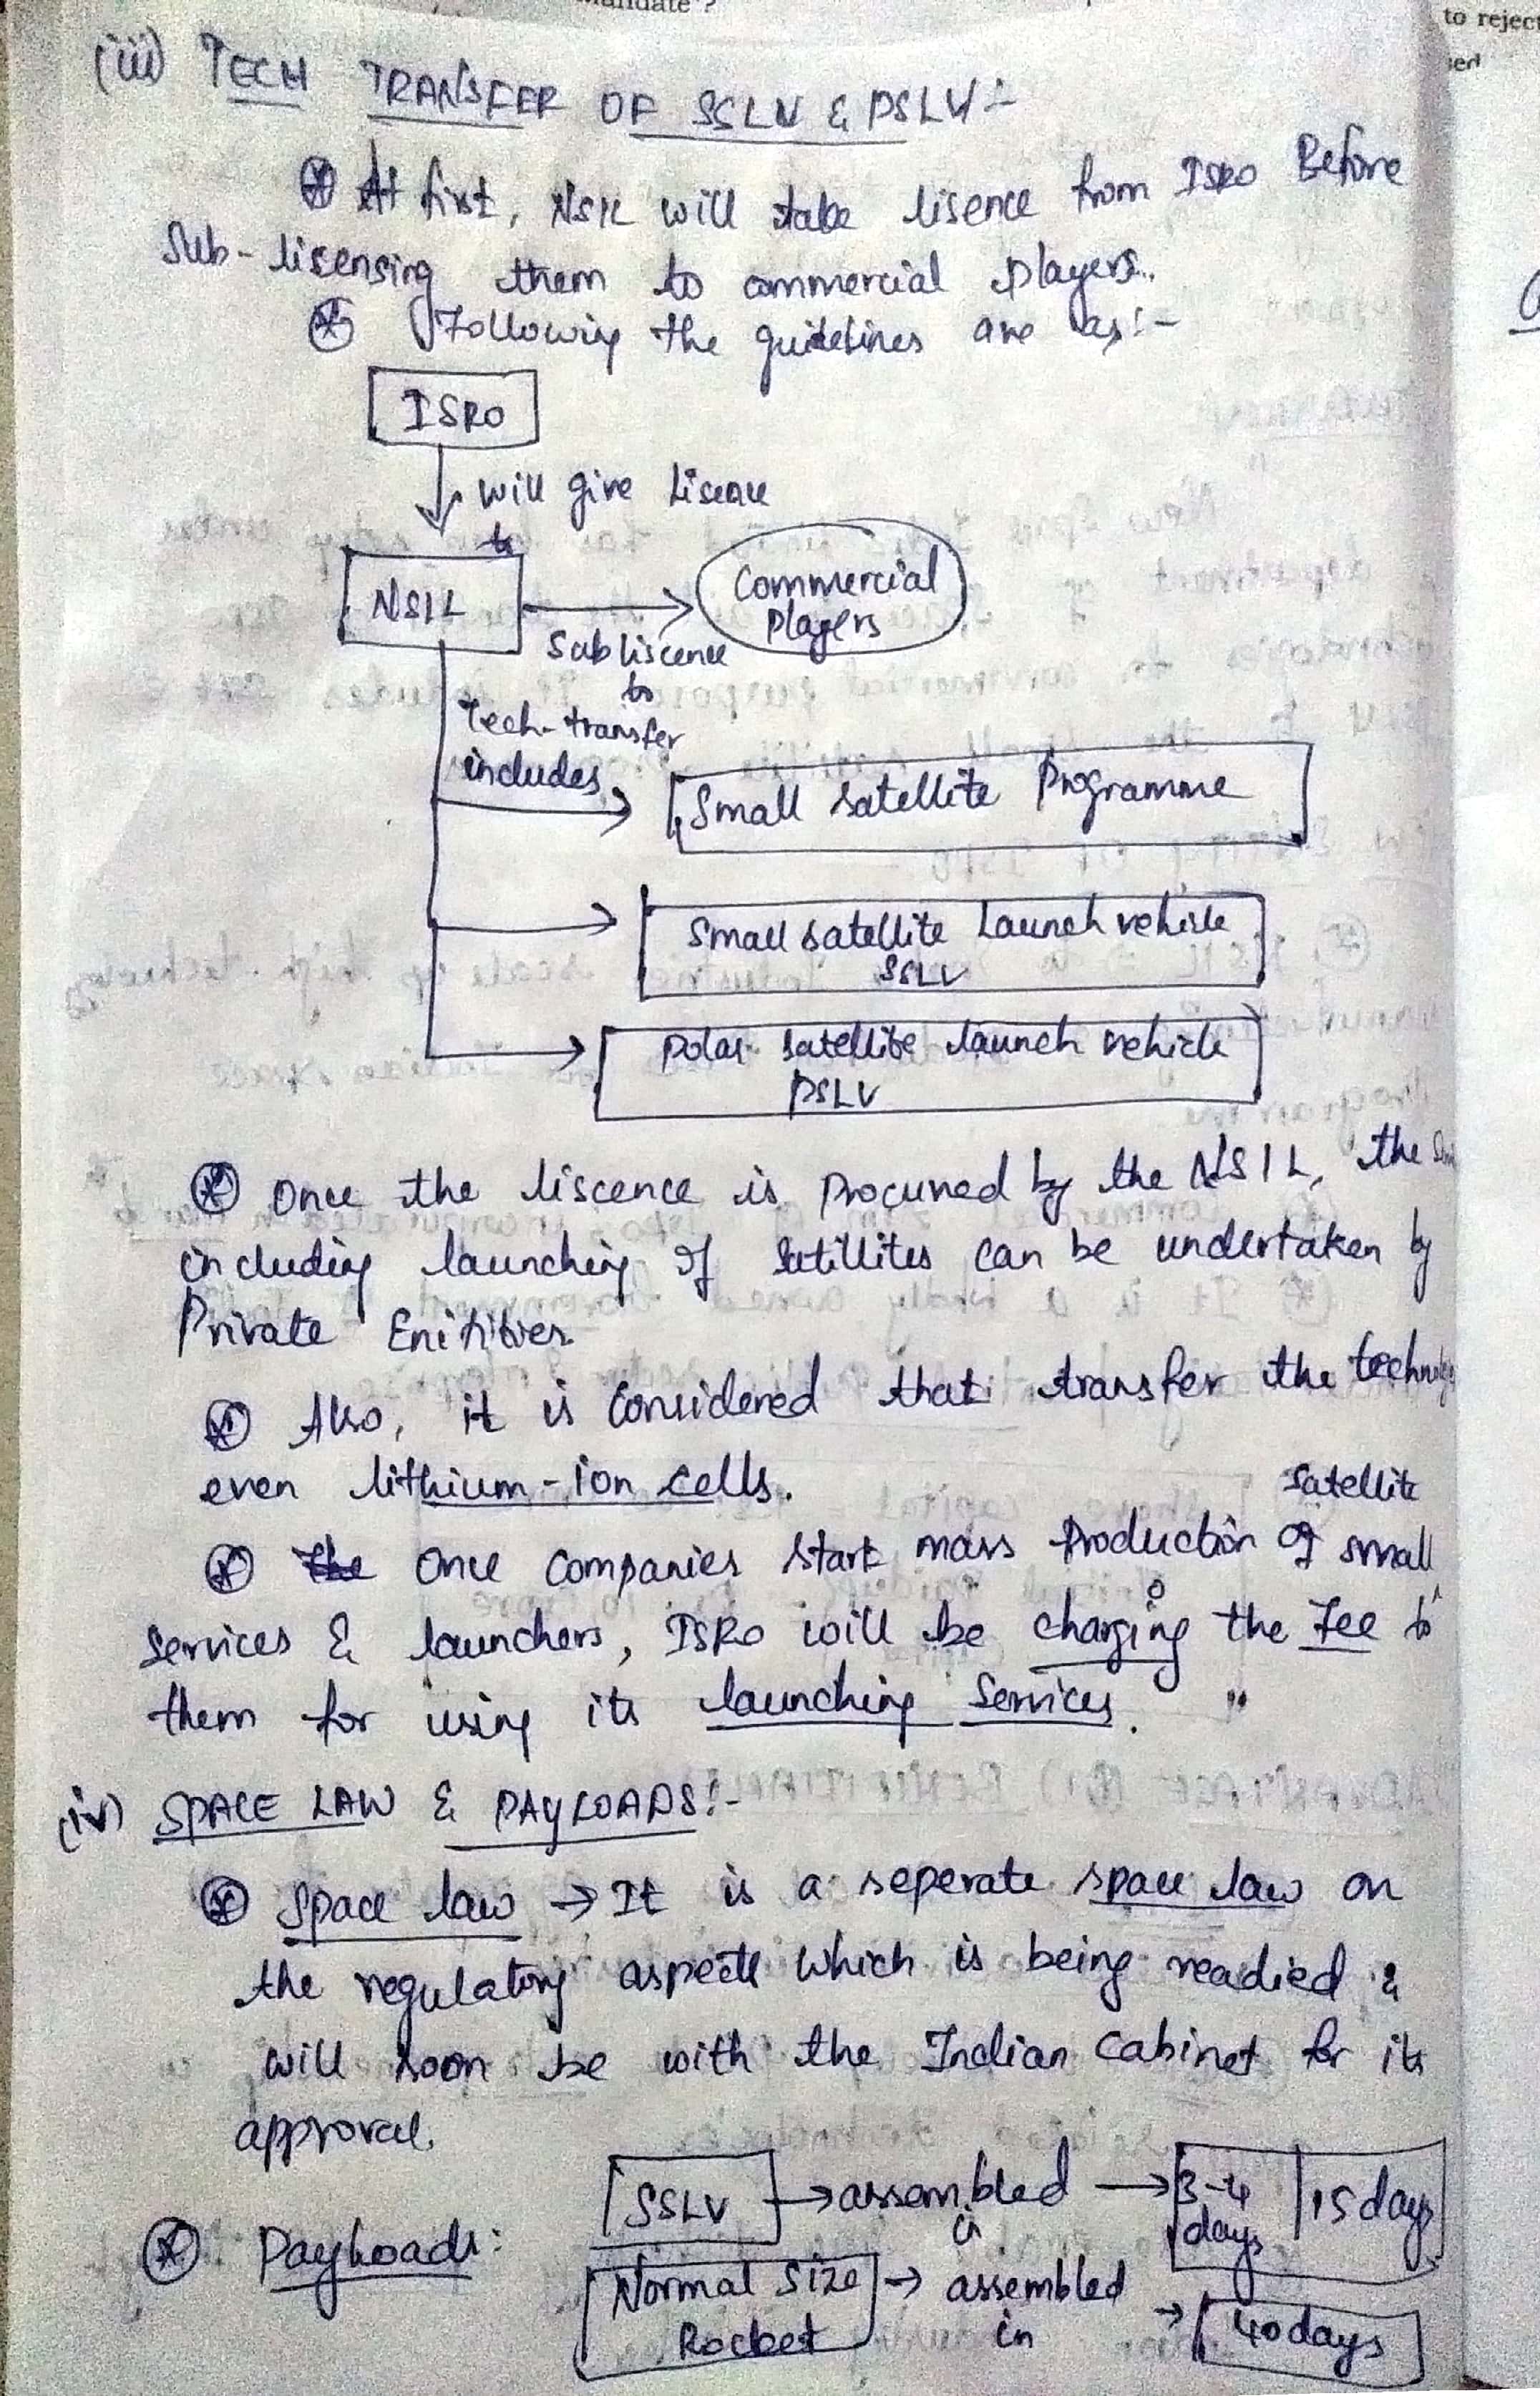 mandate ?
to reject
(iii) TECH TRANSFER OF SSLV & PSLV :-
At first, NSIL will take lisence from ISRO Before
Sub-lisensing them to commercial players.
Following the guidelines are as :-
ISRO
will give Liscence
to
NSIL
Commercial
players
Sub liscence
to
Tech-transfer
includes
Small satellite Programme
Small satellite Launch vehicle
SSLV
Polar satellite launch vehicle
PSLV
Once the liscence is procured by the NSIL, the
including launching of satillites can be undertaken by
Private Enitities.
Also, it is considered that transfer the
even lithium-ion cells.
satellite
Once companies start mass production of small
services & launchers, ISRO will be charging the Fee to
them for using its launching services.
(iv) SPACE LAW & PAYLOADS :-
Space law → It is a seperate space law on
the regulatory aspects which is being readied &
will soon be with the Indian Cabinet for its
approval.
SSLV → assembled → 3-4 | 15 days
in days
Payloads :
Normal Size → assembled
Rocket in → 40 days